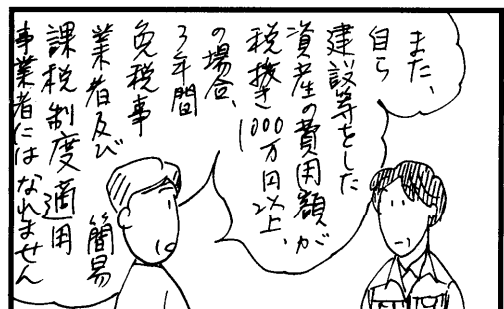 また、
自ら
建設等をした
資産の費用額が
税抜き1000万円以上、
の場合、
3年間
免税事
業者及び簡易
課税制度適用
事業者にはなれません